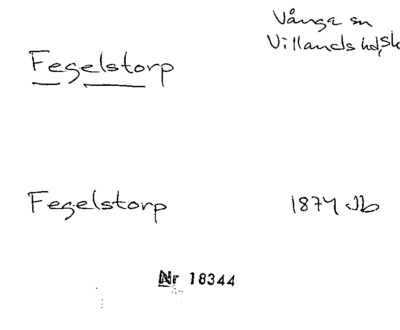 Vånga sn
Villands hd, Sk
Fegelstorp
Fegelstorp 1874 Jb
Nr 18344